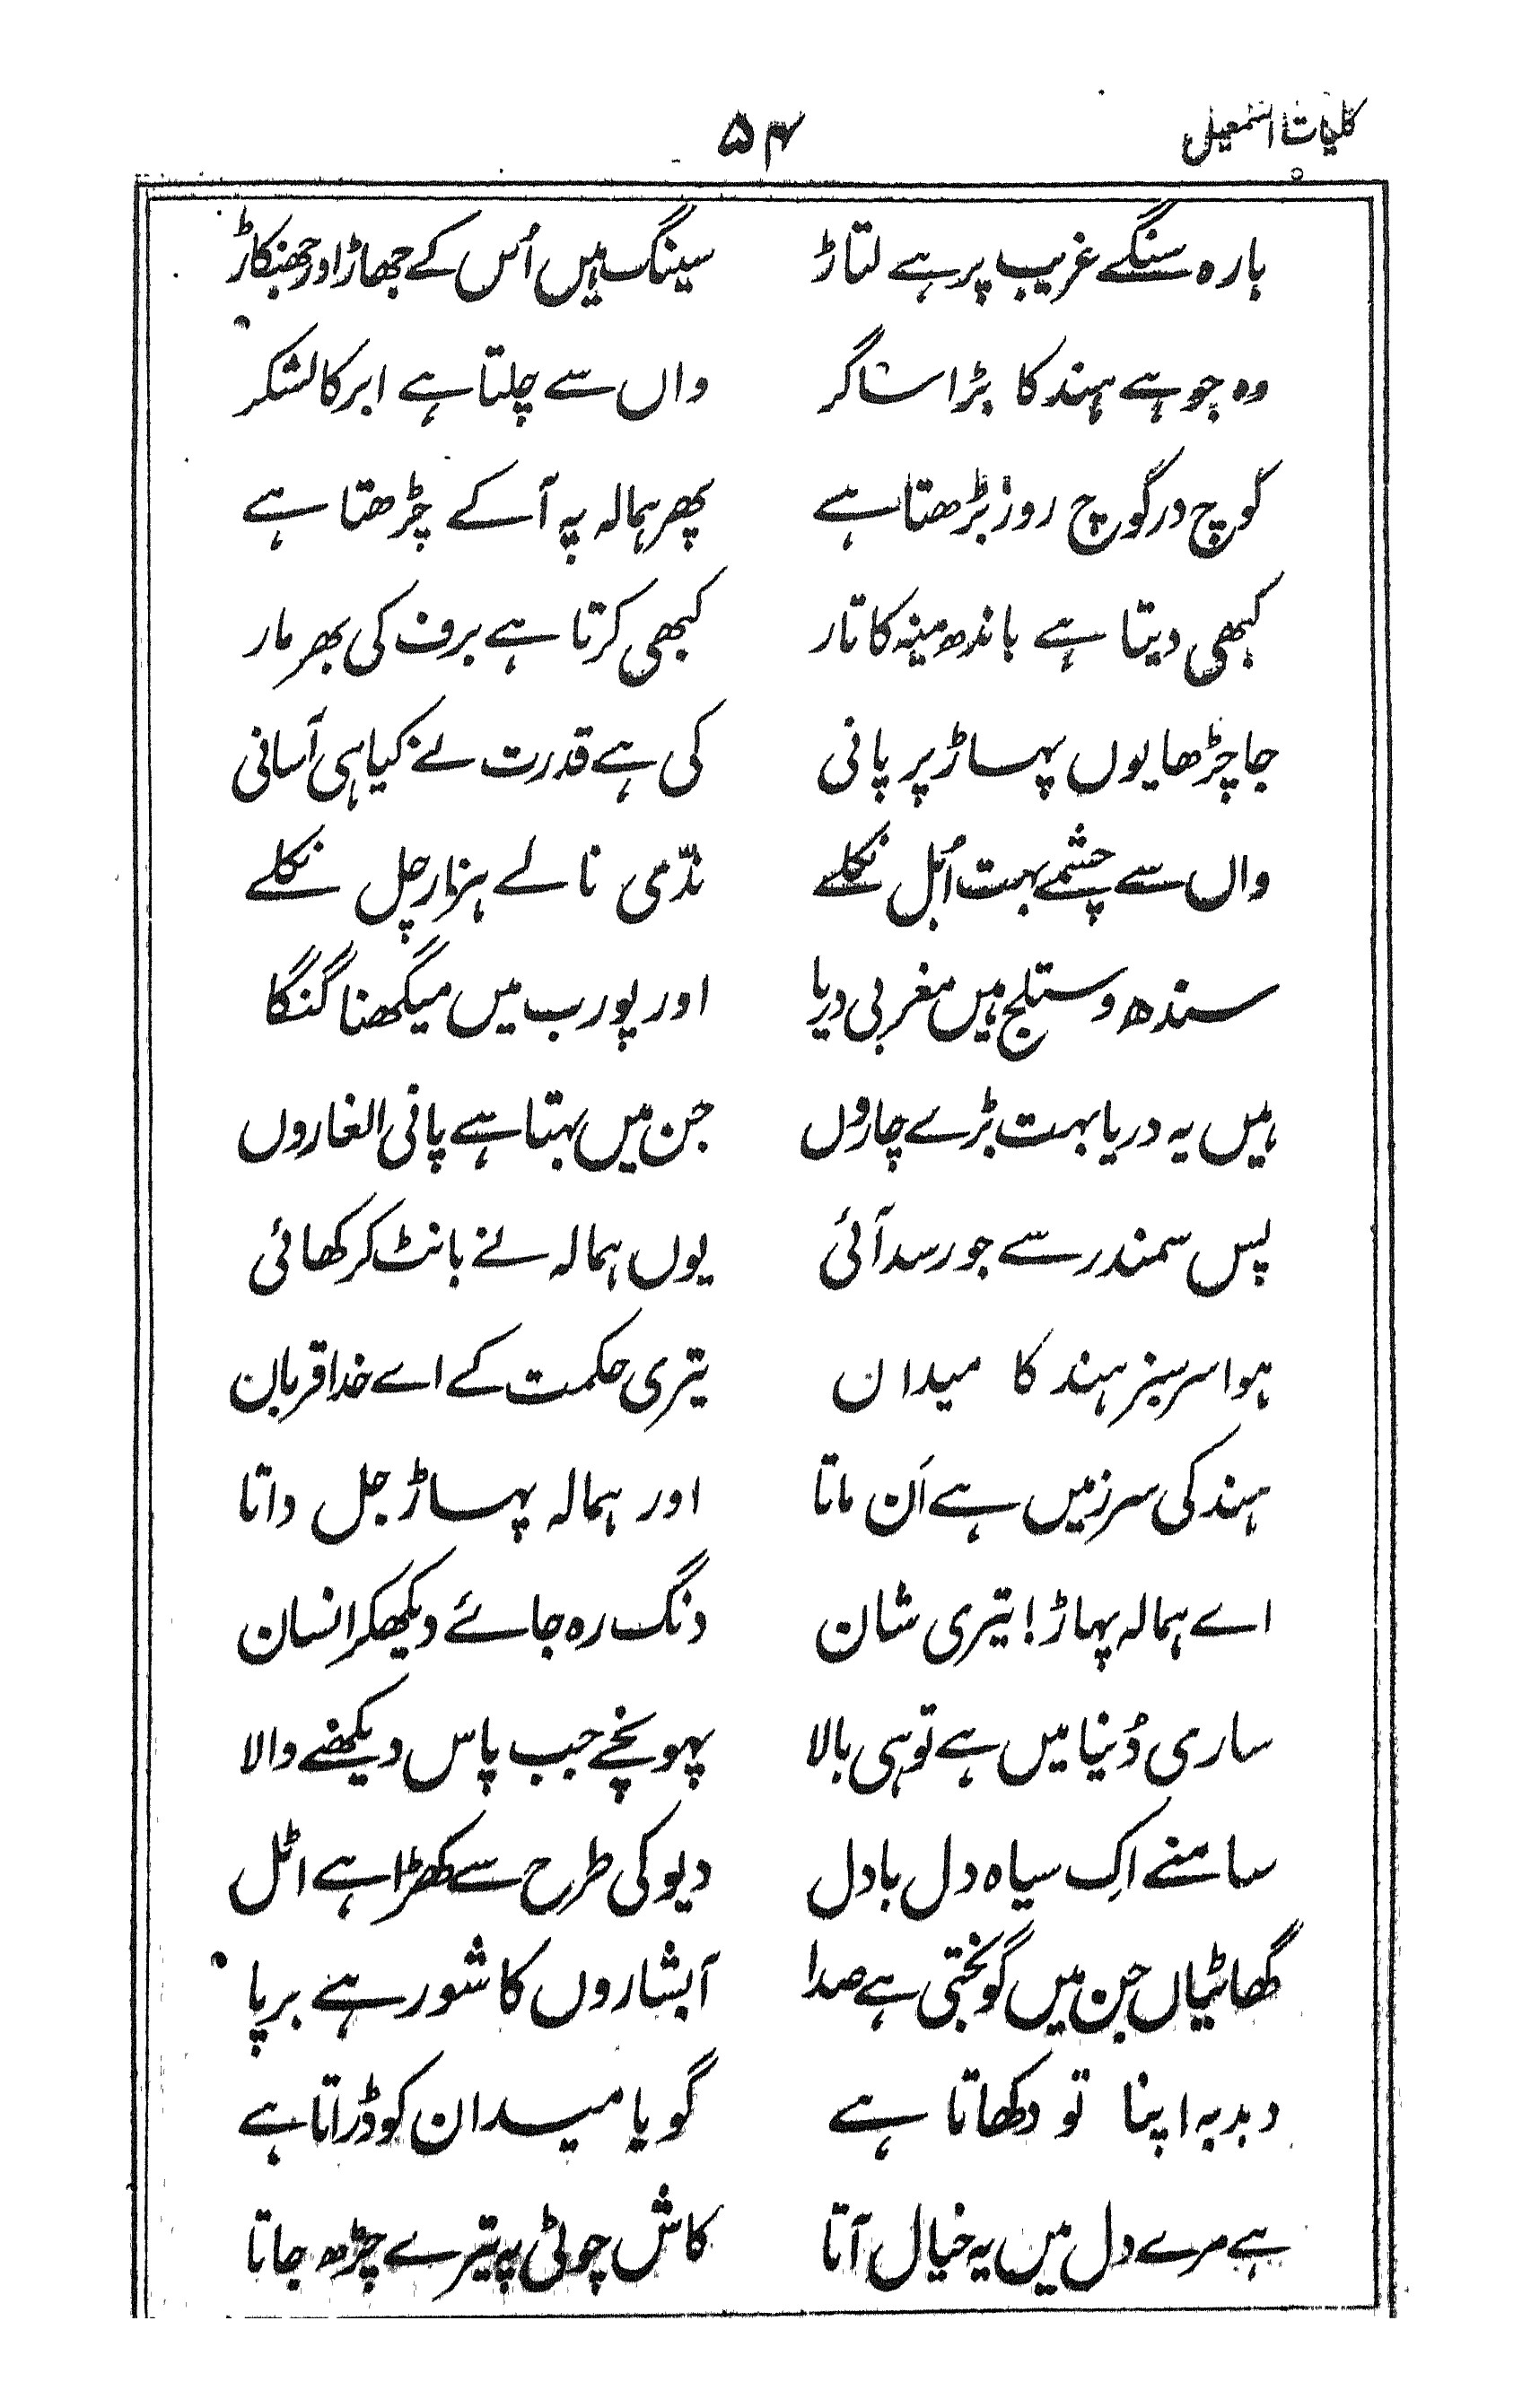 کلیات اسمٰعیل ۵۴
بارہ سنگے غریب پر ہے لتاڑ سینگ ہیں اُس کے جھاڑ اور جھنکاڑ
وہ جو ہے ہند کا بڑا ساگر واں سے چلتا ہے ابر کا لشکر
کوچ در کوچ روز بڑھتا ہے پھر ہمالہ پہ آ کے چڑھتا ہے
کبھی دیتا ہے باندھ مینہ کا تار کبھی کرتا ہے برف کی بھرمار
جا چڑھا یوں پہاڑ پر پانی کی ہے قدرت نے کیا ہی آسانی
واں سے چشمے بہت اُبل نکلے ندّی نالے ہزار چل نکلے
سندھ و ستلج ہیں مغربی دریا اور پورب میں میگھنا گنگا
ہیں یہ دریا بہت بڑے چاروں جن میں بہتا ہے پانی الغاروں
پس سمندر سے جو رسد آئی یوں ہمالہ نے بانٹ کر کھائی
ہوا سرسبز ہند کا میدان تیری حکمت کے اے خدا قربان
ہند کی سرزمیں ہے اَن ماتا اور ہمالہ پہاڑ جل داتا
اے ہمالہ پہاڑ! تیری شان دنگ رہ جائے دیکھکر انسان
ساری دُنیا میں ہے تو ہی بالا پہونچے جب پاس دیکھنے والا
سامنے اِک سیاہ دل بادل دیو کی طرح سے کھڑا ہے اٹل
گھاٹیاں جن میں گونجتی ہے صدا آبشاروں کا شور ہے برپا
دبدبہ اپنا تو دکھاتا ہے گویا میدان کو ڈراتا ہے
ہے مرے دل میں یہ خیال آتا کاش چوٹی پہ تیرے چڑھ جاتا